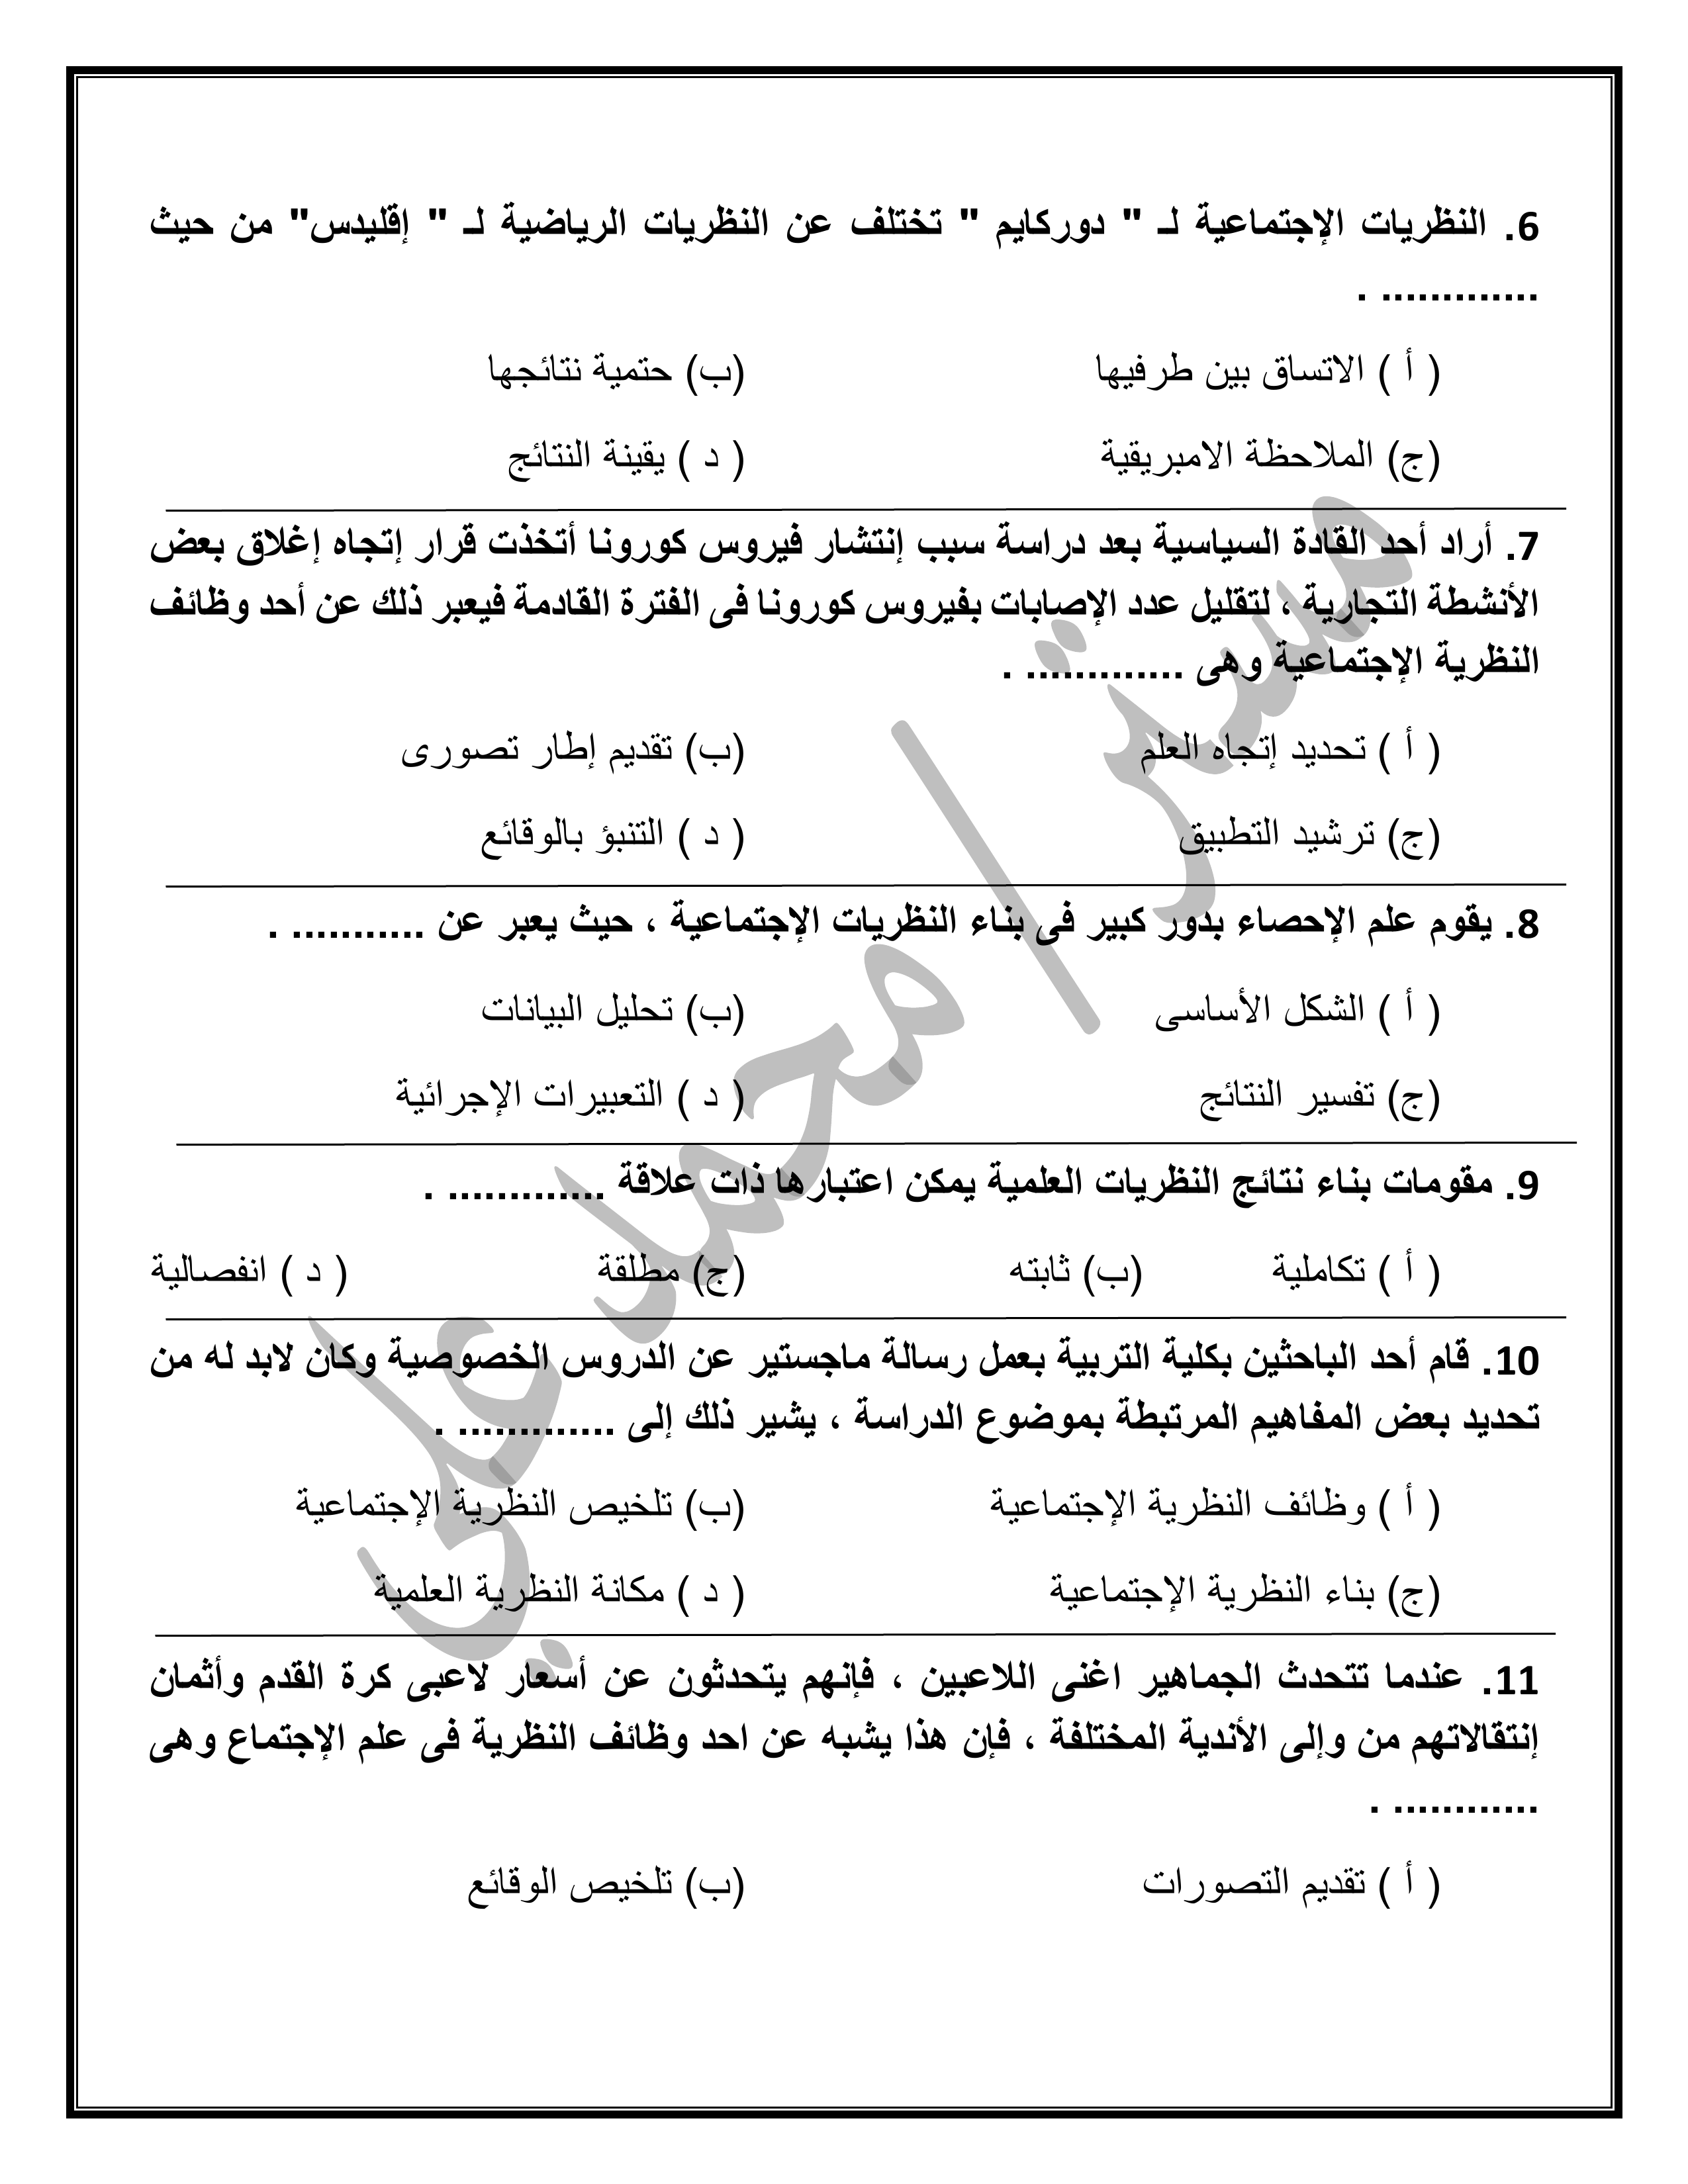 6. النظريات الإجتماعية لـ " دوركايم " تختلف عن النظريات الرياضية لـ " إقليدس" من حيث
............. .
( أ ) الاتساق بين طرفيها (ب) حتمية نتائجها
(ج) الملاحظة الامبريقية ( د ) يقينة النتائج
7. أراد أحد القادة السياسية بعد دراسة سبب إنتشار فيروس كورونا أتخذت قرار إتجاه إغلاق بعض
الأنشطة التجارية ، لتقليل عدد الإصابات بفيروس كورونا فى الفترة القادمة فيعبر ذلك عن أحد وظائف
النظرية الإجتماعية وهى ............. .
( أ ) تحديد إتجاه العلم (ب) تقديم إطار تصورى
(ج) ترشيد التطبيق ( د ) التنبؤ بالوقائع
8. يقوم علم الإحصاء بدور كبير فى بناء النظريات الإجتماعية ، حيث يعبر عن ........... .
( أ ) الشكل الأساسى (ب) تحليل البيانات
(ج) تفسير النتائج ( د ) التعبيرات الإجرائية
9. مقومات بناء نتائج النظريات العلمية يمكن اعتبارها ذات علاقة ............. .
( أ ) تكاملية (ب) ثابته (ج) مطلقة ( د ) انفصالية
10. قام أحد الباحثين بكلية التربية بعمل رسالة ماجستير عن الدروس الخصوصية وكان لابد له من
تحديد بعض المفاهيم المرتبطة بموضوع الدراسة ، يشير ذلك إلى ............. .
( أ ) وظائف النظرية الإجتماعية (ب) تلخيص النظرية الإجتماعية
(ج) بناء النظرية الإجتماعية ( د ) مكانة النظرية العلمية
11. عندما تتحدث الجماهير اغنى اللاعبين ، فإنهم يتحدثون عن أسعار لاعبى كرة القدم وأثمان
إنتقالاتهم من وإلى الأندية المختلفة ، فإن هذا يشبه عن احد وظائف النظرية فى علم الإجتماع وهى
............ .
( أ ) تقديم التصورات (ب) تلخيص الوقائع
مستر / محمد علي